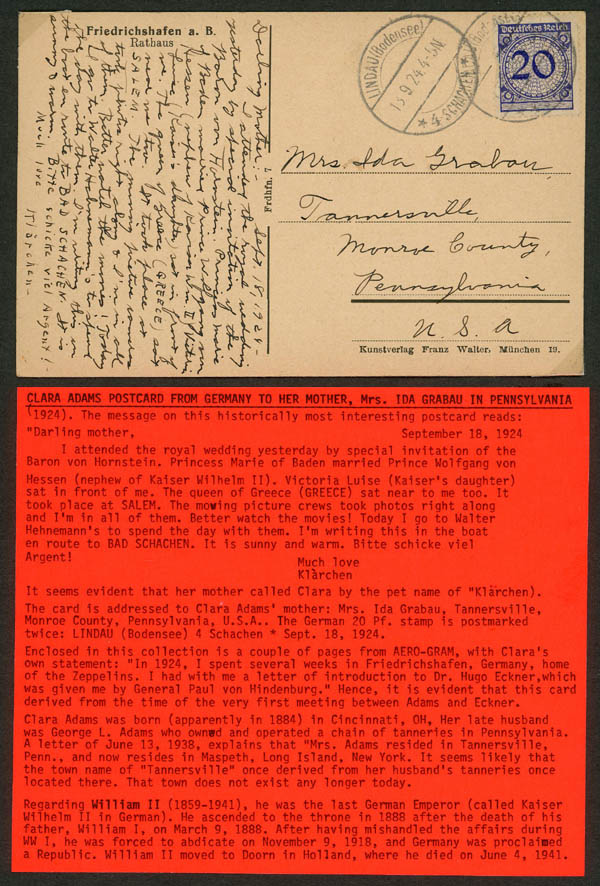 Friedrichshafen a. B.
Rathaus
Sept. 18, 1924 -
Darling Mother:
I attended the royal wedding
yesterday by special invitation of the
Baron von Hornstein. Princess Marie
of Baden married Prince Wolfgang von
Hessen (nephew of Kaiser Wilhelm II) Victoria
Luise (Kaiser's daughter) sat in front of
me. The queen of Greece (GREECE) sat
near me too. It took place at
SALEM. The moving picture
took photos right along & I'm in all
of them. Better watch the movies! Today
I go to Walter to spend
the day with them. I'm writing this in
the boat en route to BAD SCHACHEN. It is
sunny & warm. Bitte schicke viel Argent! -
Much love
Klärchen -
Frdhfn. 7
LINDAU (Bodensee)
18.9.24. 4-5N
* 4 SCHACHEN *
Deutsches Reich
20
Mrs. Ida Grabau,
Tannersville,
Monroe County,
Pennsylvania
U. S. A
Kunstverlag Franz Walter, München 19.
CLARA ADAMS POSTCARD FROM GERMANY TO HER MOTHER, Mrs. IDA GRABAU IN PENNSYLVANIA
(1924). The message on this historically most interesting postcard reads:
"Darling mother, September 18, 1924
I attended the royal wedding yesterday by special invitation of the
Baron von Hornstein. Princess Marie of Baden married Prince Wolfgang von
Hessen (nephew of Kaiser Wilhelm II). Victoria Luise (Kaiser's daughter)
sat in front of me. The queen of Greece (GREECE) sat near to me too. It
took place at SALEM. The moving picture crews took photos right along
and I'm in all of them. Better watch the movies! Today I go to Walter
Hehnemann's to spend the day with them. I'm writing this in the boat
en route to BAD SCHACHEN. It is sunny and warm. Bitte schicke viel
Argent!
Much love
Klärchen
It seems evident that her mother called Clara by the pet name of "Klärchen).
The card is addressed to Clara Adams' mother: Mrs. Ida Grabau, Tannersville,
Monroe County, Pennsylvania, U.S.A.. The German 20 Pf. stamp is postmarked
twice: LINDAU (Bodensee) 4 Schachen * Sept. 18, 1924.
Enclosed in this collection is a couple of pages from AERO-GRAM, with Clara's
own statement: "In 1924, I spent several weeks in Friedrichshafen, Germany, home
of the Zeppelins. I had with me a letter of introduction to Dr. Hugo Eckner,which
was given me by General Paul von Hindenburg." Hence, it is evident that this card
derived from the time of the very first meeting between Adams and Eckner.
Clara Adams was born (apparently in 1884) in Cincinnati, OH, Her late husband
was George L. Adams who owned and operated a chain of tanneries in Pennsylvania.
A letter of June 13, 1938, explains that "Mrs. Adams resided in Tannersville,
Penn., and now resides in Maspeth, Long Island, New York. It seems likely that
the town name of "Tannersville" once derived from her husband's tanneries once
located there. That town does not exist any longer today.
Regarding William II (1859-1941), he was the last German Emperor (called Kaiser
Wilhelm II in German). He ascended to the throne in 1888 after the death of his
father, William I, on March 9, 1888. After having mishandled the affairs during
WW I, he was forced to abdicate on November 9, 1918, and Germany was proclaimed
a Republic. William II moved to Doorn in Holland, where he died on June 4, 1941.